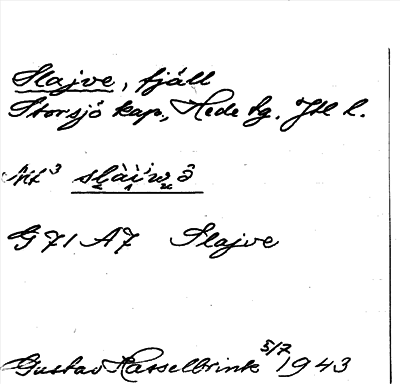 Slajve, fjäll
Storsjö kap., Hede tg. Jtl l.
Mt³ slàiwə̂
G 71 A7 Slajve
Gustav Hasselbrink 5/7 1943